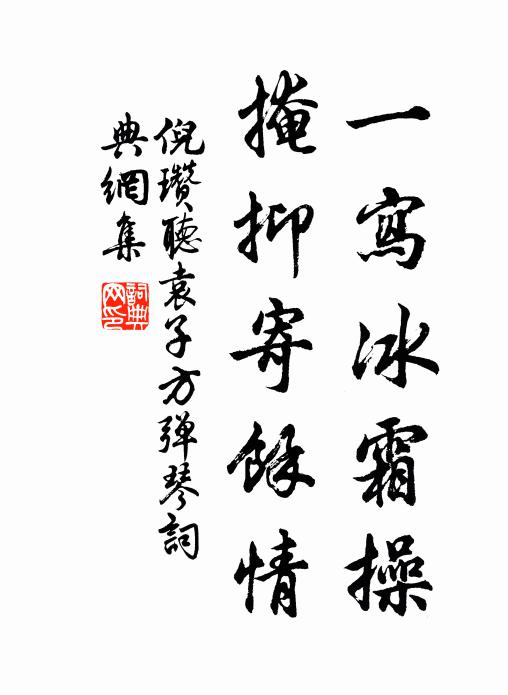 一寫冰霜操
掩抑寄餘情
倪瓚聽袁子方彈琴詞
典網集
詞典网印